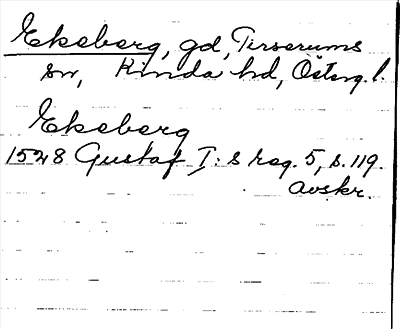 Ekeberg, gd, Tirserums
sn, Kinda hd, Österg. l.
Ekeberg
1528 Gustaf I:s reg. 5, s. 119.
avskr.